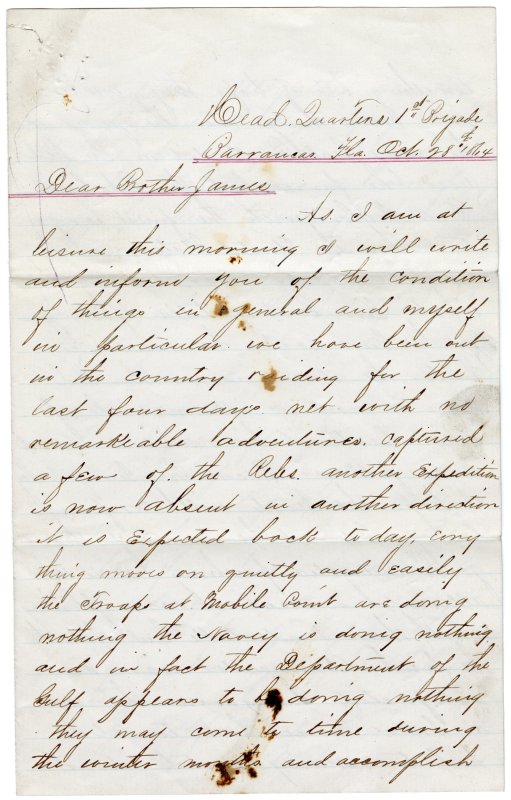 Head. Quarters 1st Brigade
Barrancas. Fla. Oct. 28th /64
Dear Brother James
As. I am at
leisure this morning I will write
and inform you of the condition
of things in general and myself
in particular. we have been out
in the country raiding for the
last four days met with no
remarkeable adventures. captured
a few of. the Rebs. another Expedition
is now absent in another direction
it is Expected back to day. evry
thing moves on quietly and easily
the Troops at Mobile Point are doing
nothing the Navey is doing nothing
and in fact the Department of the
Gulf appears to be doing nothing
they may come to time during
the winter months and accomplish